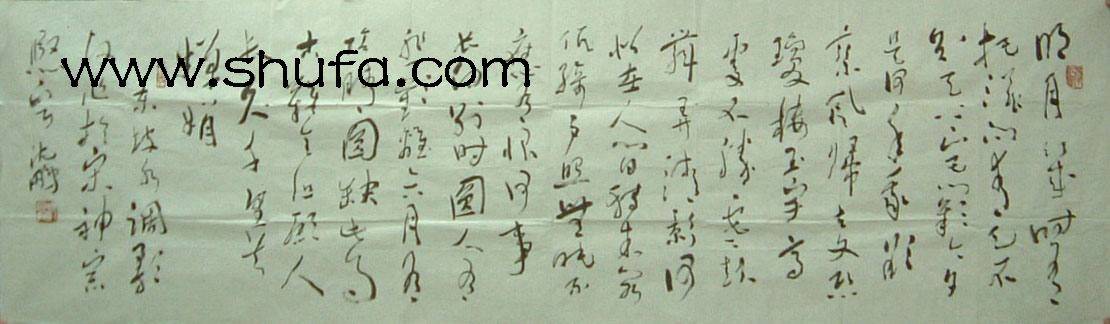 明月几时有
把酒问青天不
知天上宫阙今夕
是何年我欲
乘风归去又恐
琼楼玉宇高
处不胜寒起
舞弄清影何
似在人间转朱阁
低绮户照无眠不
应有恨何事
长向别时圆人有
悲欢离合月有
阴晴圆缺此事
古难全但愿人
长久千里共
婵娟
东坡水调歌
头作于宋神宗
熙宁 沈鹏
www.shufa.com